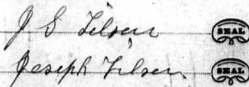 J S Tilson SEAL
Joseph Tilson SEAL